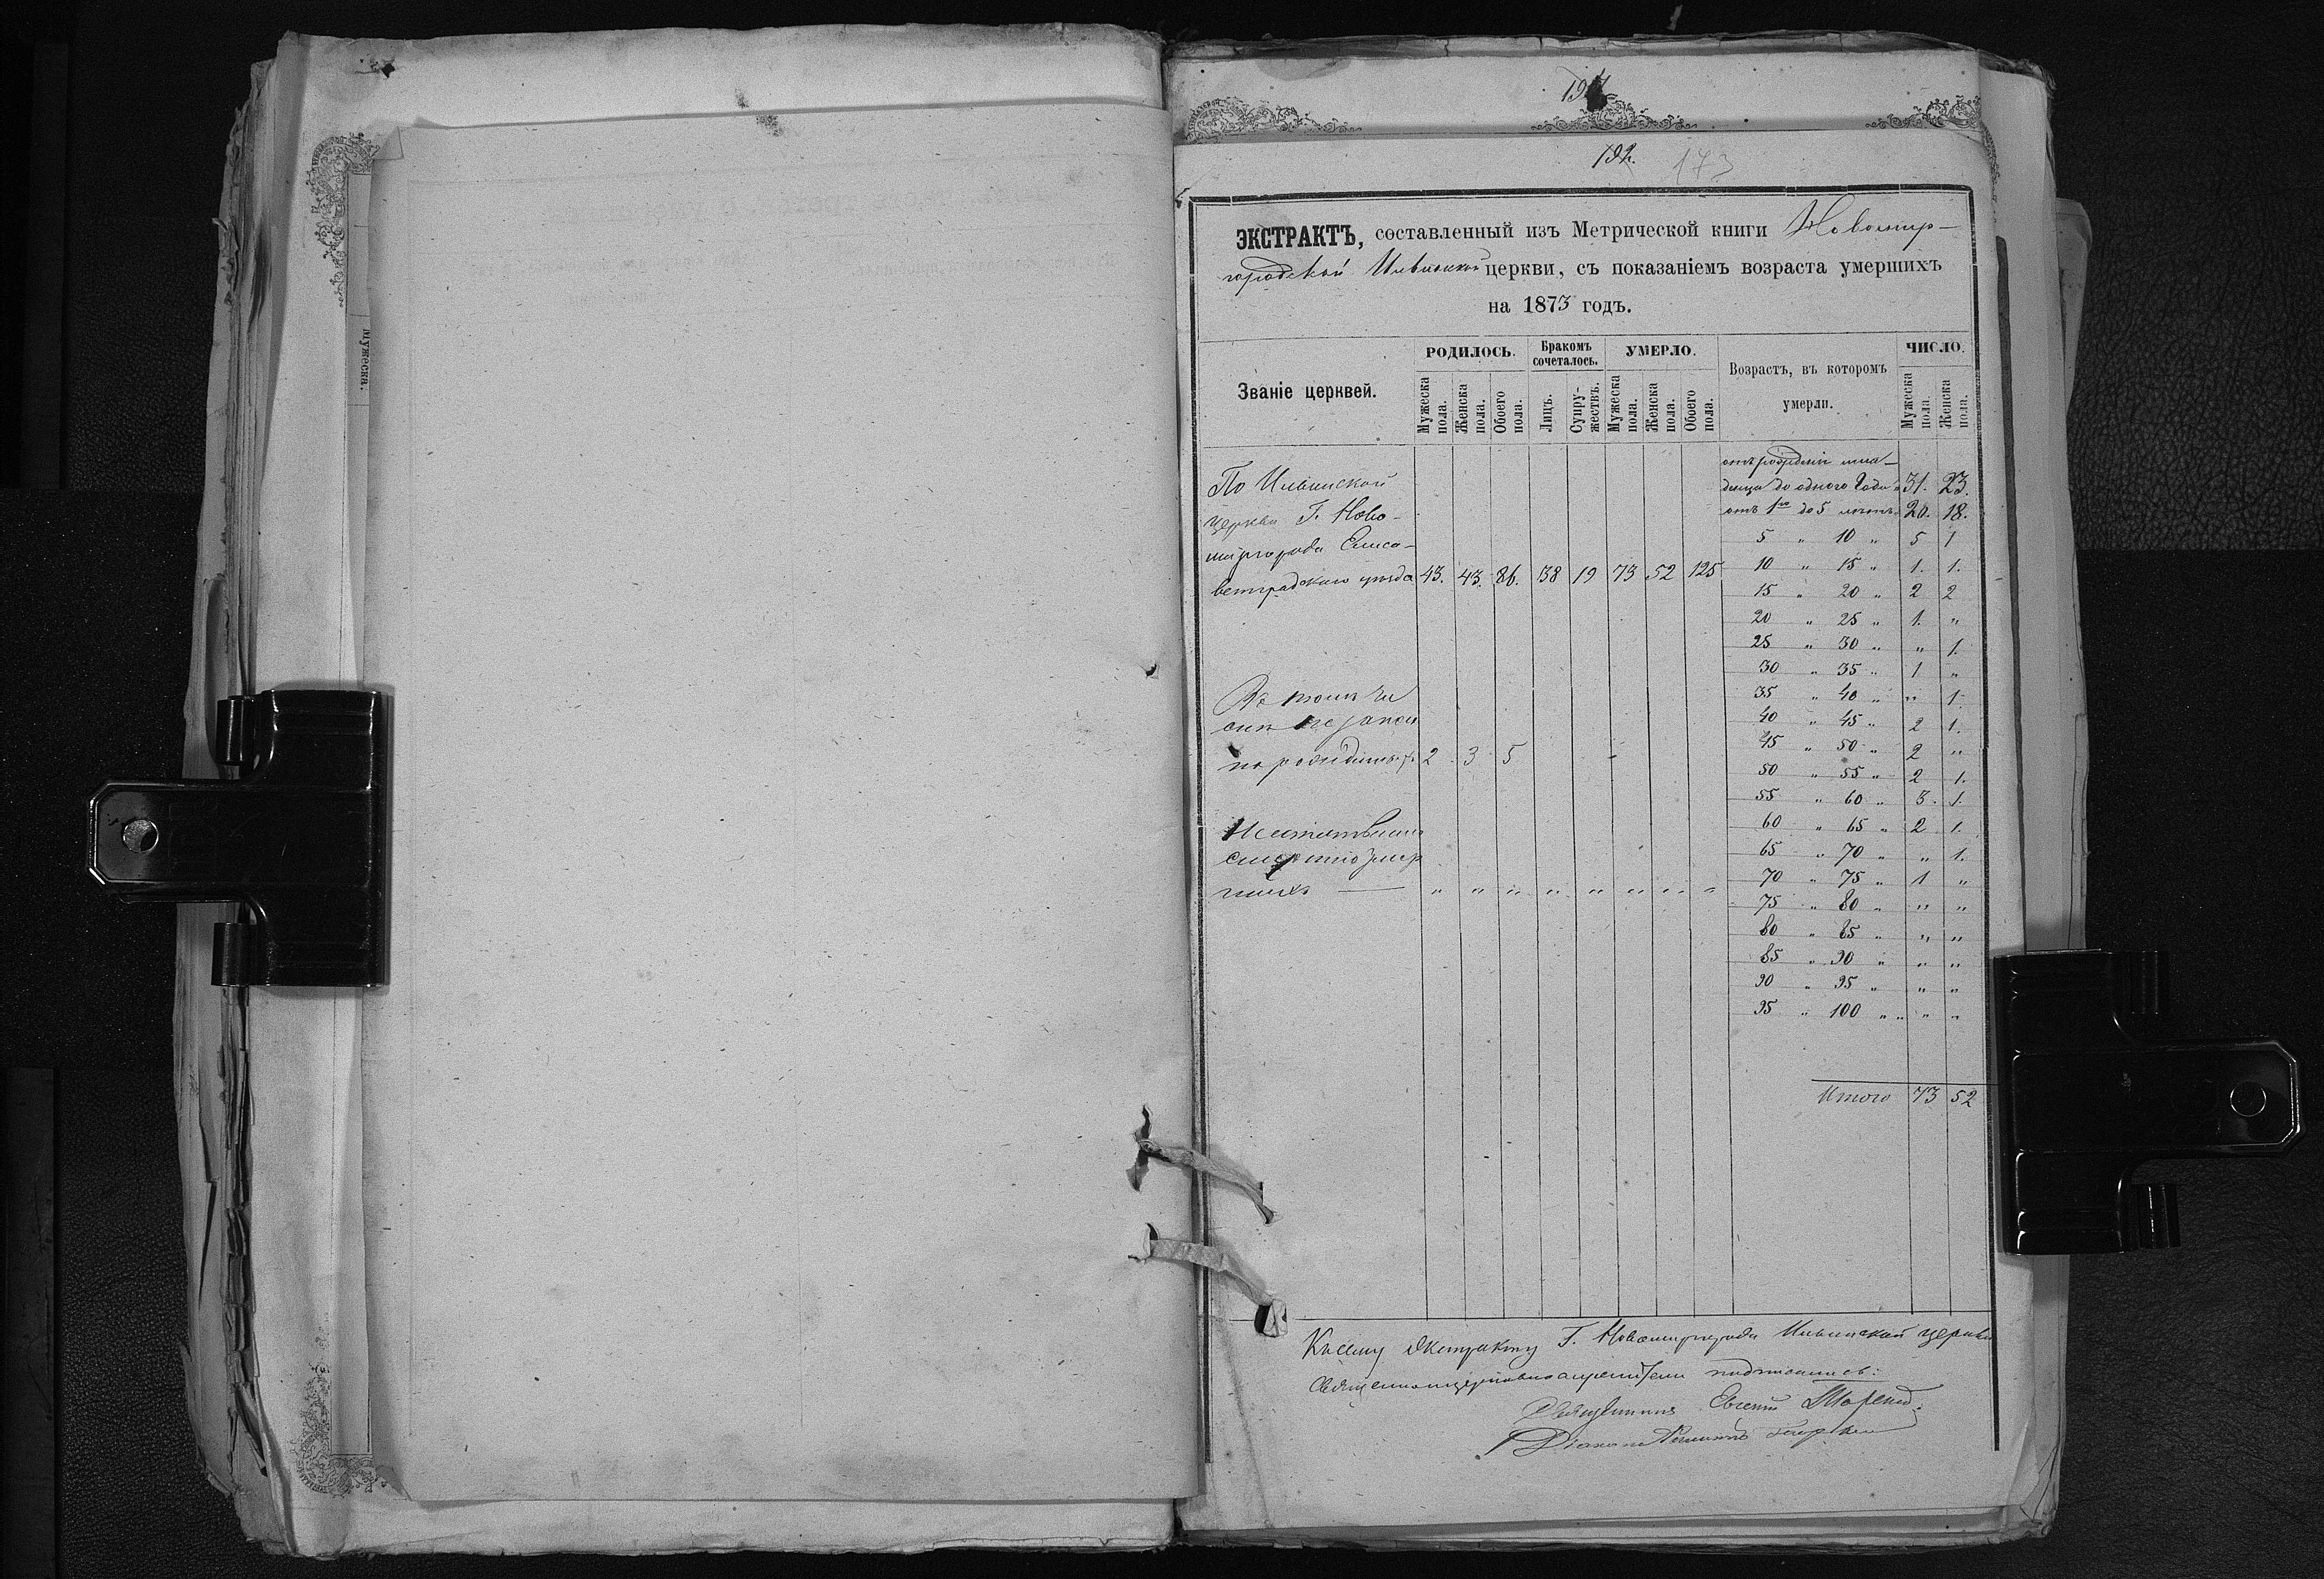 192.
173
ЭКСТРАКТЪ, составленный изъ Метрической книги Новомир-
городской Ильинской церкви, съ показаніемъ возраста умершихъ
на 1873 годъ.
Званіе церквей.
РОДИЛОСЬ.
Бракомъ сочеталось.
УМЕРЛО.
Возрастъ, въ которомъ умерли.
ЧИСЛО.
Мужеска пола.
Женска пола.
Обоего пола.
Лицъ.
Супружествъ.
Мужеска пола.
Женска пола.
Обоего пола.
Мужеска пола.
Женска пола.
По Ильинской
церкви Г. Ново-
миргорода Елиса-
ветградскаго уѣзда 43. 43. 86. 38 19 73 52 125
Въ томъ чи
слѣ незакон
но рожденныхъ 2 3 5
смертію умер
шихъ — " " " " " " " "
отъ рожденія мла-
денца до одного года 31. 23.
отъ 1го до 5 лѣтъ 20. 18.
5 " 10 " 5 1
10 " 15 " 1. 1.
15 " 20 " 2 2
20 " 25 " 1. "
25 " 30 " " 1.
30 " 35 " 1 "
35 " 40 " " 1
40 " 45 " 2 1.
45 " 50 " 2 "
50 " 55 " 2 1.
55 " 60 " 3. 1.
60 " 65 " 2 1.
65 " 70 " " 1.
70 " 75 " 1 "
75 " 80 " " "
80 " 85 " " "
85 " 90 " " "
90 " 95 " " "
95 " 100 " " " "
Итого 73 52
Къ сему экстракту Г. Новомиргорода Ильинской церкви
подписались:
Священникъ Евгеній
Діаконъ
Мужеска.